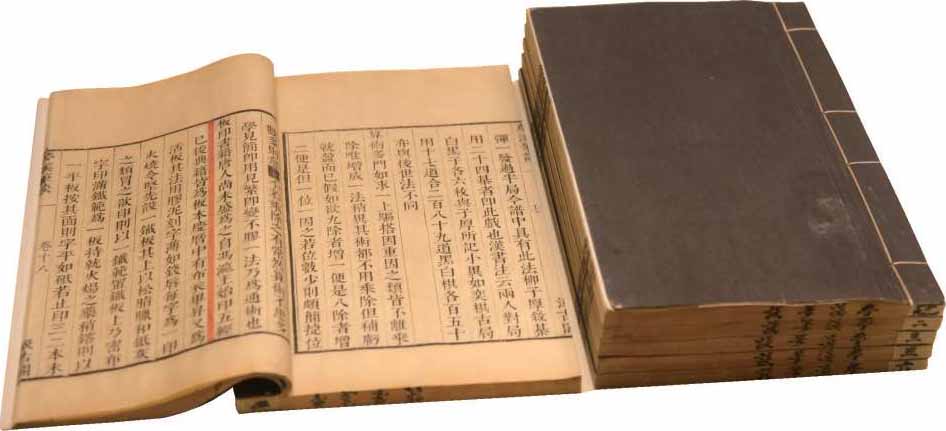 彈一發過半局今譜中具有此法柳子厚敘棊
用二十四棊者卽此戲也漢書注云兩人對局
白黑子各六枚與子厚所記小異如奕棋古局
用十七道合二百八十九道黑白棋各百五十
亦與後世法不同
算術多門如求一上驅搭因重因之類皆不離乘
除唯增成一法稍異其術都不用乘除但補虧
就盈而已假如欲九除者增一便是八除者增
二便是但一位一因之若位數少則頗簡捷位
學見簡卽用見繁卽變不膠一法乃爲通術也
板印書籍唐人尚未盛爲之自馮瀛王始印五經
已後典籍皆爲板本慶曆中有布衣畢昇又爲
活板其法用膠泥刻字薄如錢唇每字爲一印
火燒令堅先設一鐵板其上以松脂臘和紙灰
之類冒之欲印則以一鐵範置鐵板上乃密布
字印滿鐵範爲一板持就火煬之藥稍鎔則以
一平板按其面則字平如砥若止印三二本未
卷十八